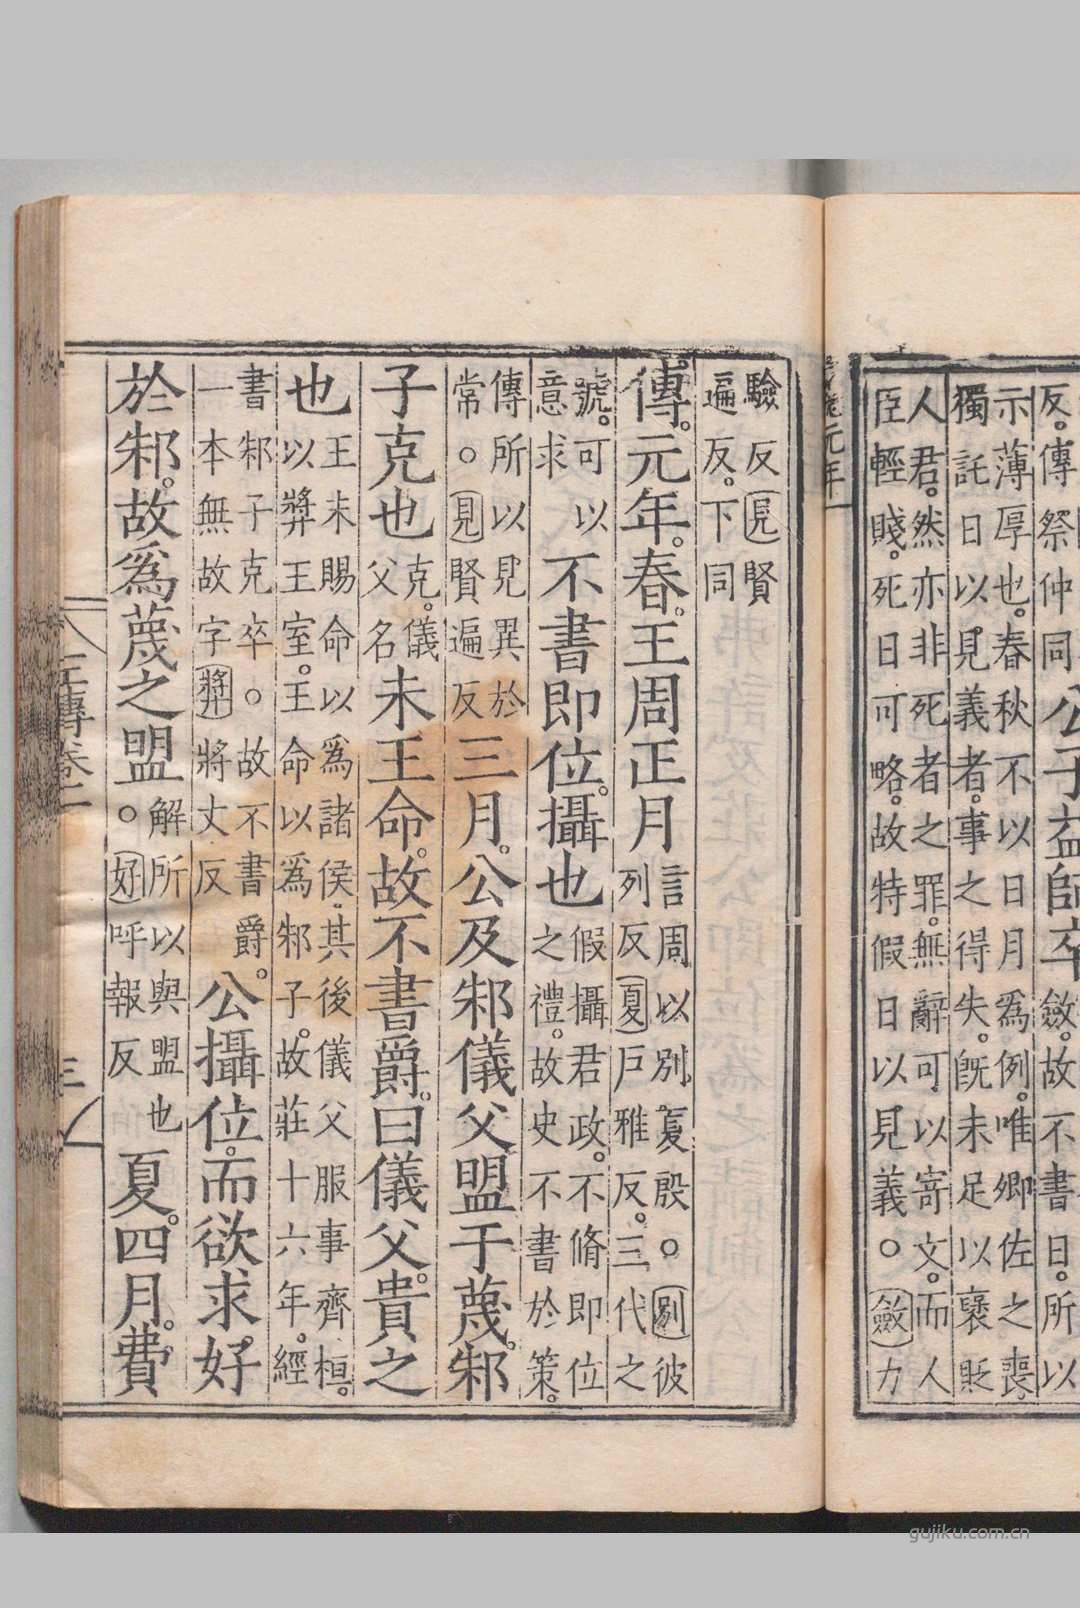 反。傳祭仲同
公子益師卒
斂。故不書日。所以
示薄厚也。春秋不以日月爲例。唯卿佐之喪。
獨託日以見義者。事之得失。既未足以襃貶
人君。然亦非死者之罪。無辭可以寄文。而人
臣輕賤。死日可略。故特假日以見義。○斂力
元年
驗反見賢
遍反。下同
傳。元年。春。王周正月
言周以別夏殷。○別彼
列反夏戶雅反。三代之
號。可以
意求
不書即位。攝也
假攝君政。不脩即位
之禮。故史不書於策。
傳所以見異於
常。○見賢遍反
三月。公及邾儀父盟于蔑。邾
子克也
克。儀
父名
未王命。故不書爵。曰儀父。貴之
也
王未賜命以爲諸侯。其後儀父服事齊桓。
以獎王室。王命以爲邾子。故莊十六年。經
書邾子克卒。○故不書爵。
一本無故字獎將丈反
公攝位。而欲求好
於邾。故爲蔑之盟。
解所以與盟也
○好呼報反
夏。四月。費
左傳卷二
三
gujiku.com.cn